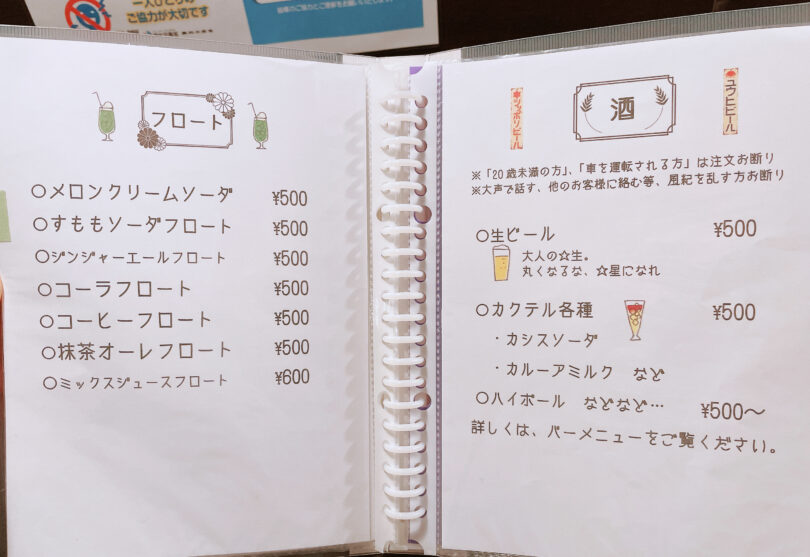 一人ひとりの
ご協力が大切です
皆様のご協力とご理解をお願いいたします
フロート
○メロンクリームソーダ ¥500
○すももソーダフロート ¥500
○ジンジャーエールフロート ¥500
○コーラフロート ¥500
○コーヒーフロート ¥500
○抹茶オーレフロート ¥500
○ミックスジュースフロート ¥600
キッポソビール
酒
ユウヒビール
※「20歳未満の方」、「車を運転される方」は注文お断り
※大声で話す、他のお客様に絡む等、風紀を乱す方お断り
○生ビール ¥500
大人の☆生。
丸くなるな、☆星になれ
○カクテル各種 ¥500
・カシスソーダ
・カルーアミルク など
○ハイボール などなど… ¥500～
詳しくは、バーメニューをご覧ください。